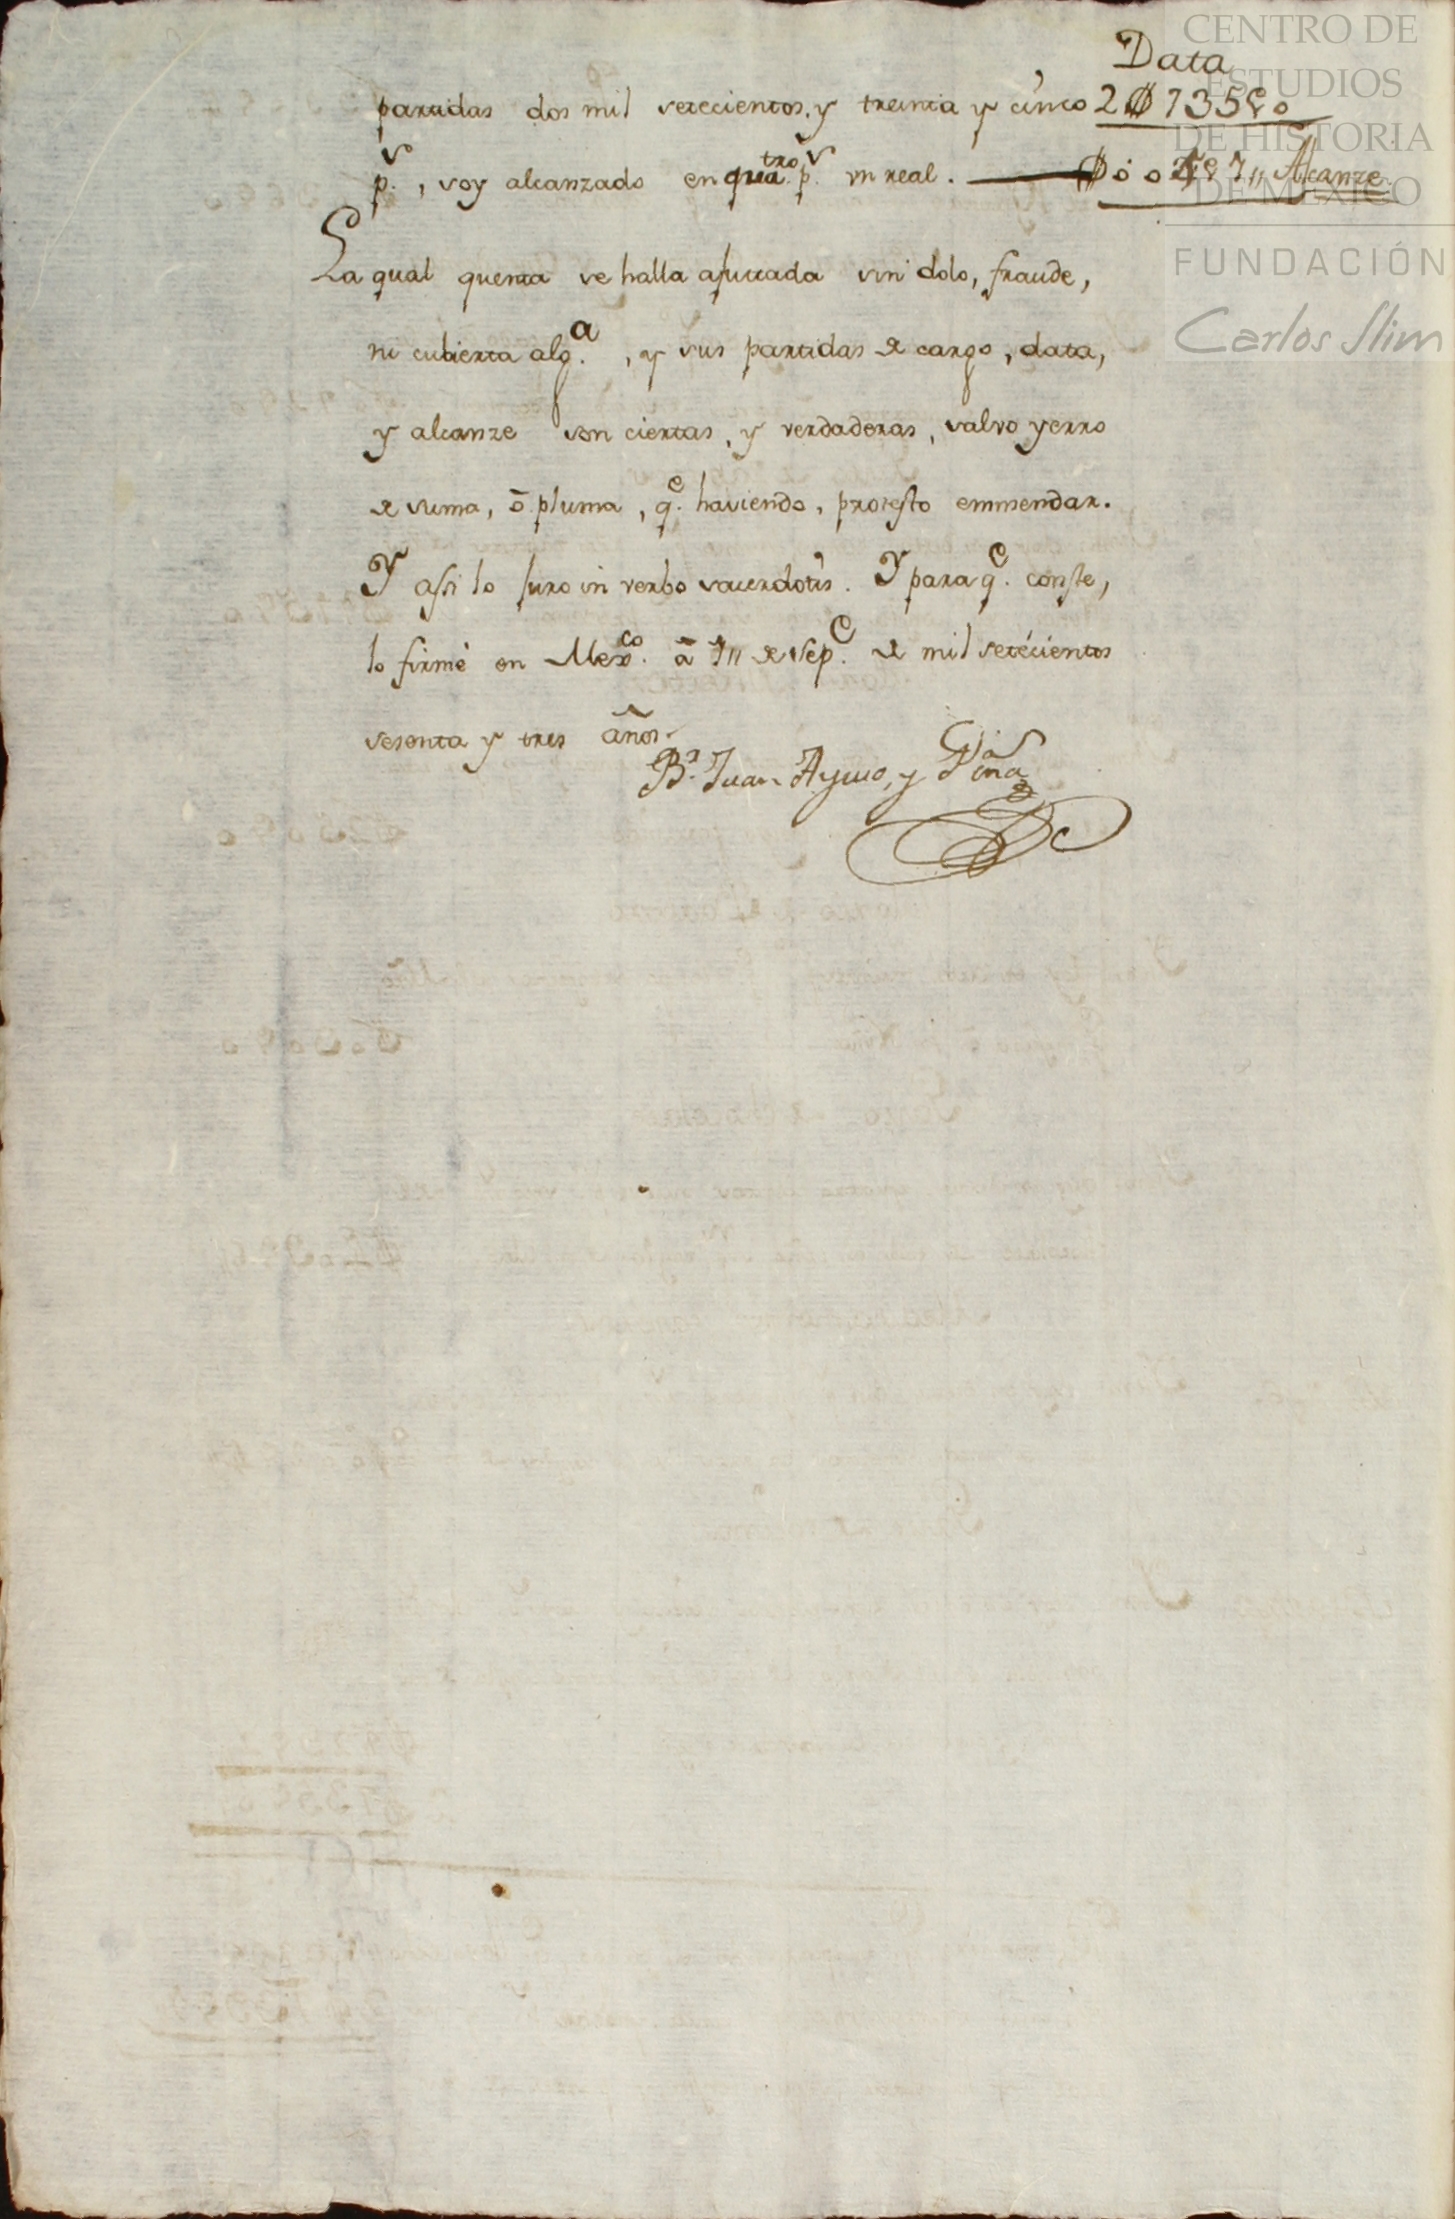 Data
partidas dos mil setecientos, y treinta y cinco 2@ 735 p 0
p.s, voy alcanzado en quatro p.s un real. @ 0 0 4 p 1 " Alcanze
La qual quenta se halla ajustada sin dolo, fraude,
ni cubierta alg.a, y sus partidas de cargo, data,
y alcanze son ciertas, y verdaderas, salvo yerro
de suma, ô pluma, q.e haviendo, protesto emmendar.
Y assi lo juro in verbo sacerdotis. Y para q.e conste,
lo firmé en Mex.co â 1" de Sep.e de mil setecientos
sesenta y tres años.
B.r Juan y Peña
CENTRO DE
ESTUDIOS
DE HISTORIA
DE MÉXICO
FUNDACIÓN
Carlos Slim